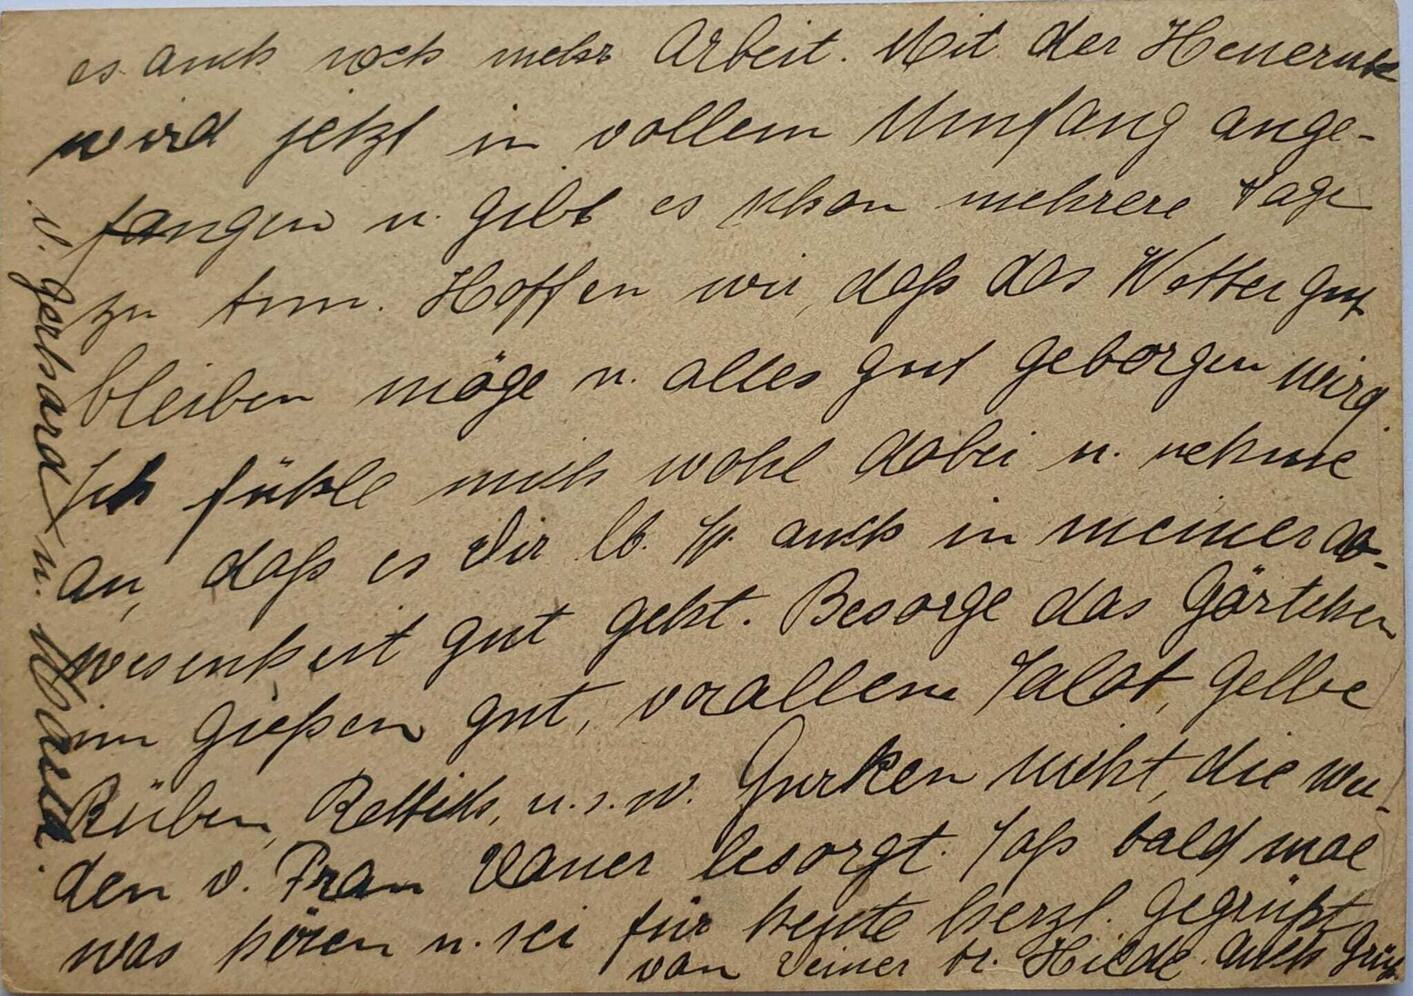 es auch noch mehr Arbeit. Mit der Heuernte
wird jetzt in vollem Umfang ange-
fangen u. gibt es schon mehrere Tage
zu tun. Hoffen wir, daß das Wetter gut
bleiben möge u. alles gut geborgen wird.
Ich fühle mich wohl dabei u. nehme
an, daß es Dir lb. auch in meiner Ab-
wesenheit gut geht. Besorge das Gärtchen
im Gießen gut, vorallem Salat, gelbe
Rüben, Rettich, u.s.w. Gurken nicht, die wer-
den v. Frau besorgt. Laß bald mal
was hören u. sei für heute herzl. gegrüßt
von Deiner Hilde. Auch Grüße
v. Gerhard u.